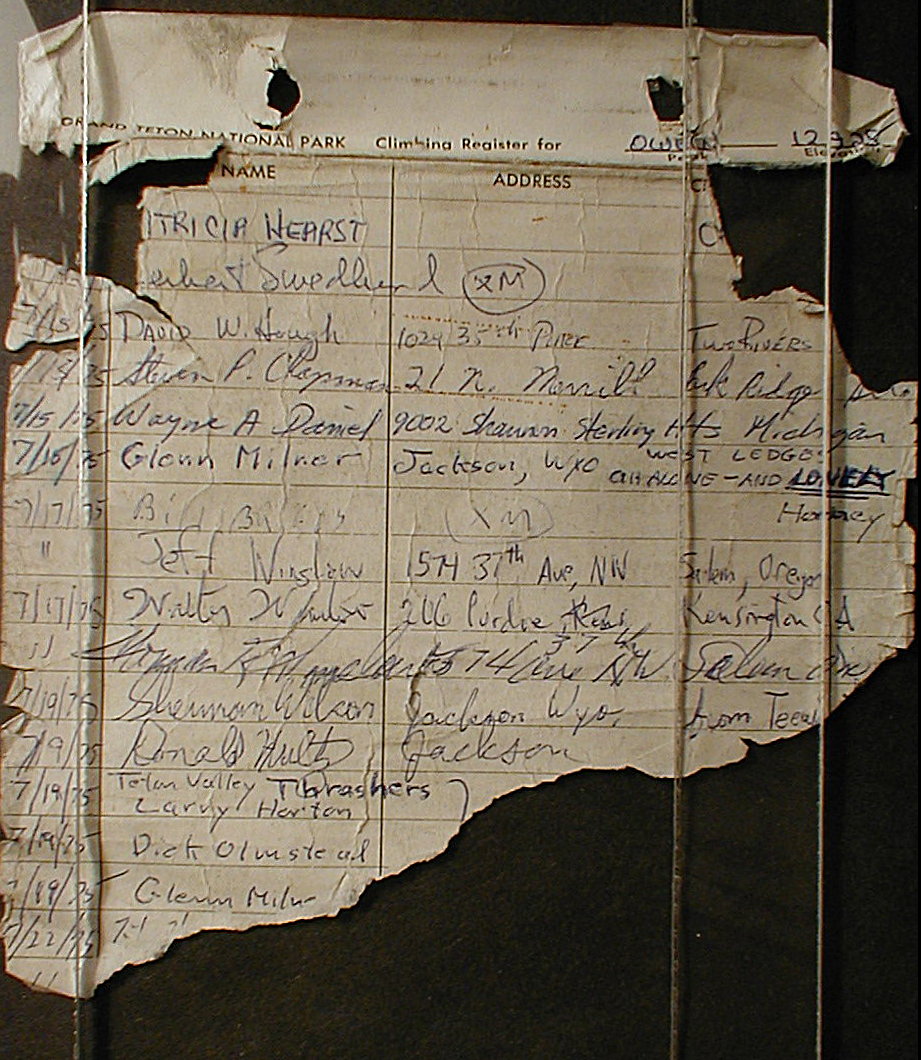 GRAND TETON NATIONAL PARK Climbing Register for OWEN 12,925
Peak Elevation
NAME ADDRESS
ITRICIA HEARST
erbert Swedlund XM
7/15/75 DAVID W. Hough 1024 35th PURK Two RIVERS
Steven P. Chapman 21 N. Merrill Park Ridge
7/15/75 Wayne A Daniel 9002 Shawn Sterling Hts Michigan
7/16/75 Glenn Milner Jackson, Wyo WEST LEDGES
ALL ALONE - AND LONELY
7/17/75 XM Horney
" Jeff Winslow 1574 37th Ave, NW Salem, Oregon
7/17/75 Walter 266 Purdue Kensington CA
" 1574 37th Ave N.W. Salem Ore
7/19/75 Sherman Wilson Jackson Wyo, from
7/19/75 Ronald Jackson
7/19/75 Teton Valley Thrashers
Larry Horton
7/19/75 Dick Olmstead
7/19/75 Glenn Miln
7/22/75
"